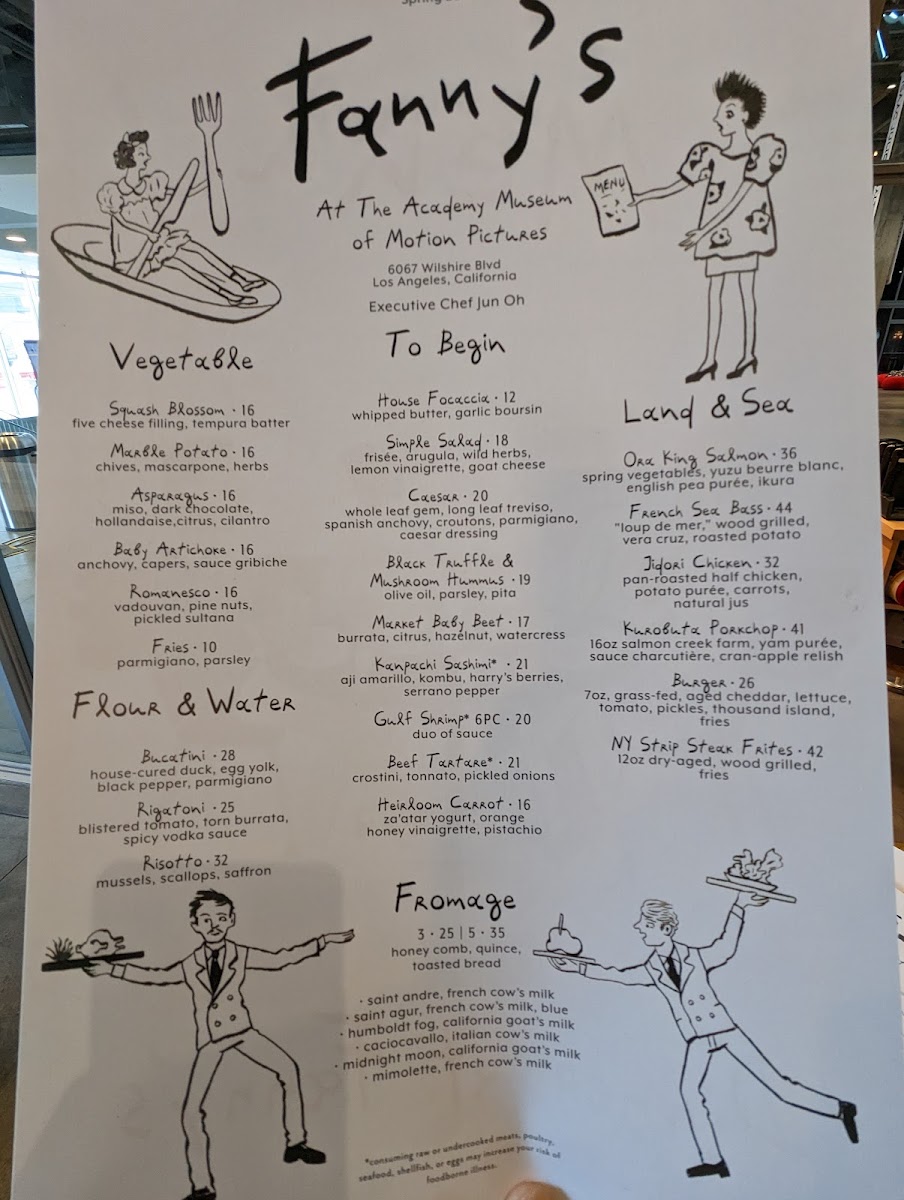 Fanny's
At The Academy Museum
of Motion Pictures
6067 Wilshire Blvd
Los Angeles, California
Executive Chef Jun Oh
MENU
Vegetable
Squash Blossom · 16
five cheese filling, tempura batter
Marble Potato · 16
chives, mascarpone, herbs
Asparagus · 16
miso, dark chocolate,
hollandaise,citrus, cilantro
Baby Artichoke · 16
anchovy, capers, sauce gribiche
Romanesco · 16
vadouvan, pine nuts,
pickled sultana
Fries · 10
parmigiano, parsley
Flour & Water
Bucatini · 28
house-cured duck, egg yolk,
black pepper, parmigiano
Rigatoni · 25
blistered tomato, torn burrata,
spicy vodka sauce
Risotto · 32
mussels, scallops, saffron
To Begin
House Focaccia · 12
whipped butter, garlic boursin
Simple Salad · 18
frisée, arugula, wild herbs,
lemon vinaigrette, goat cheese
Caesar · 20
whole leaf gem, long leaf treviso,
spanish anchovy, croutons, parmigiano,
caesar dressing
Black Truffle &
Mushroom Hummus · 19
olive oil, parsley, pita
Market Baby Beet · 17
burrata, citrus, hazelnut, watercress
Kanpachi Sashimi* · 21
aji amarillo, kombu, harry's berries,
serrano pepper
Gulf Shrimp* 6PC · 20
duo of sauce
Beef Tartare* · 21
crostini, tonnato, pickled onions
Heirloom Carrot · 16
za'atar yogurt, orange
honey vinaigrette, pistachio
Fromage
3 · 25 | 5 · 35
honey comb, quince,
toasted bread
· saint andre, french cow's milk
· saint agur, french cow's milk, blue
· humboldt fog, california goat's milk
· caciocavallo, italian cow's milk
· midnight moon, california goat's milk
· mimolette, french cow's milk
Land & Sea
Ora King Salmon · 36
spring vegetables, yuzu beurre blanc,
english pea purée, ikura
French Sea Bass · 44
"loup de mer," wood grilled,
vera cruz, roasted potato
Jidori Chicken · 32
pan-roasted half chicken,
potato purée, carrots,
natural jus
Kurobuta Porkchop · 41
16oz salmon creek farm, yam purée,
sauce charcutière, cran-apple relish
Burger · 26
7oz, grass-fed, aged cheddar, lettuce,
tomato, pickles, thousand island,
fries
NY Strip Steak Frites · 42
12oz dry-aged, wood grilled,
fries
*consuming raw or undercooked meats, poultry,
seafood, shellfish, or eggs may increase your risk of
foodborne illness.